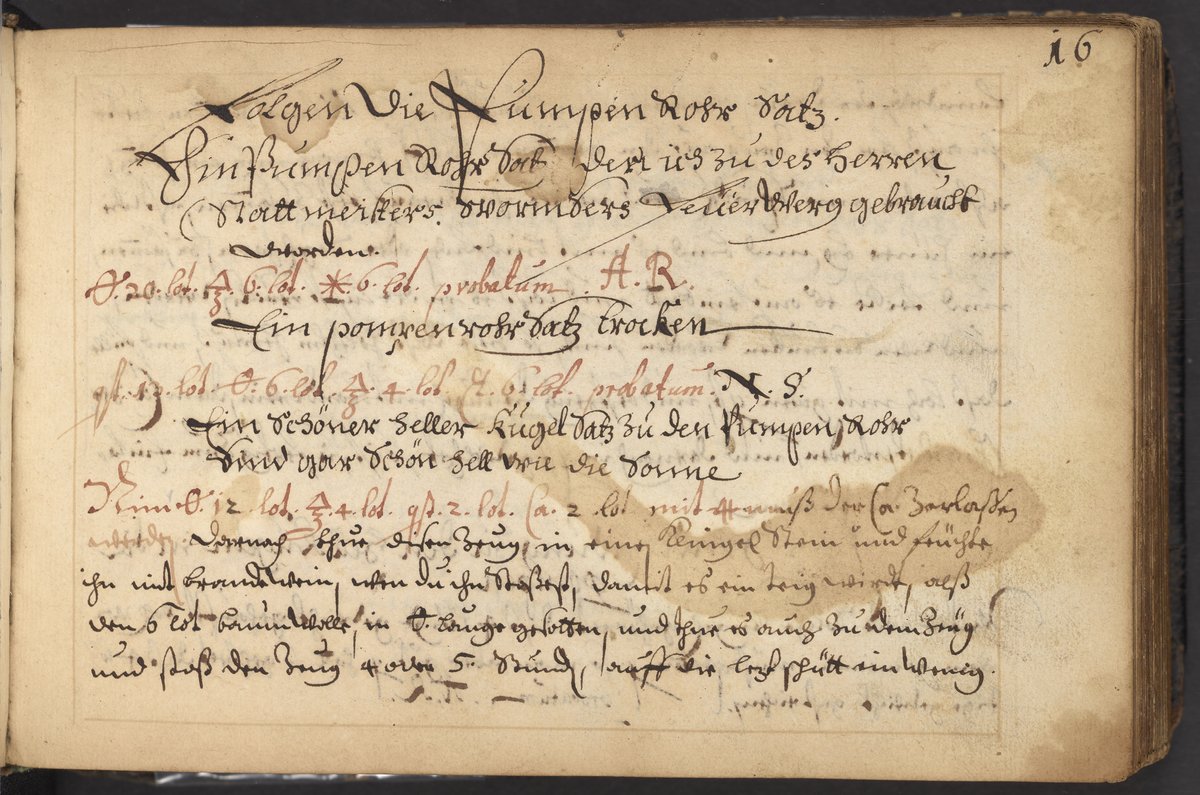 16
Folgen Die Pumpen Rohr Satz.
Ein Pumpen Rohr Satz der ich zu des Herren
Stattmeisters Feüer Werg gebraucht
worden.
20. lot. 6. lot. 6. lot. probatum. A. R.
Ein pompenrohr Satz trocken
lot 6. lot. 4. lot. 6. lot. probatum. N. S.
Ein Schöner heller Kugel Satz zu den Pumpen Rohr
Sind gar Schön hell wie die Sonne
Nim 12. lot. 4. lot. 2. lot. Ca. 2 lot mit muß der Ca. Zerlassen
werden darnach thue disen Zeug in einen Stein und feüchte
ihn mit brandtwein, wen du ihn Stoßest, damit es ein teig wirdt, alß
den 6 lot baumwolle, in lauge gesotten, und thue es auch zu dem Zeüg
und stoß den Zeug 4 oder 5. Stund, auff die letzt schütt ein wenig.